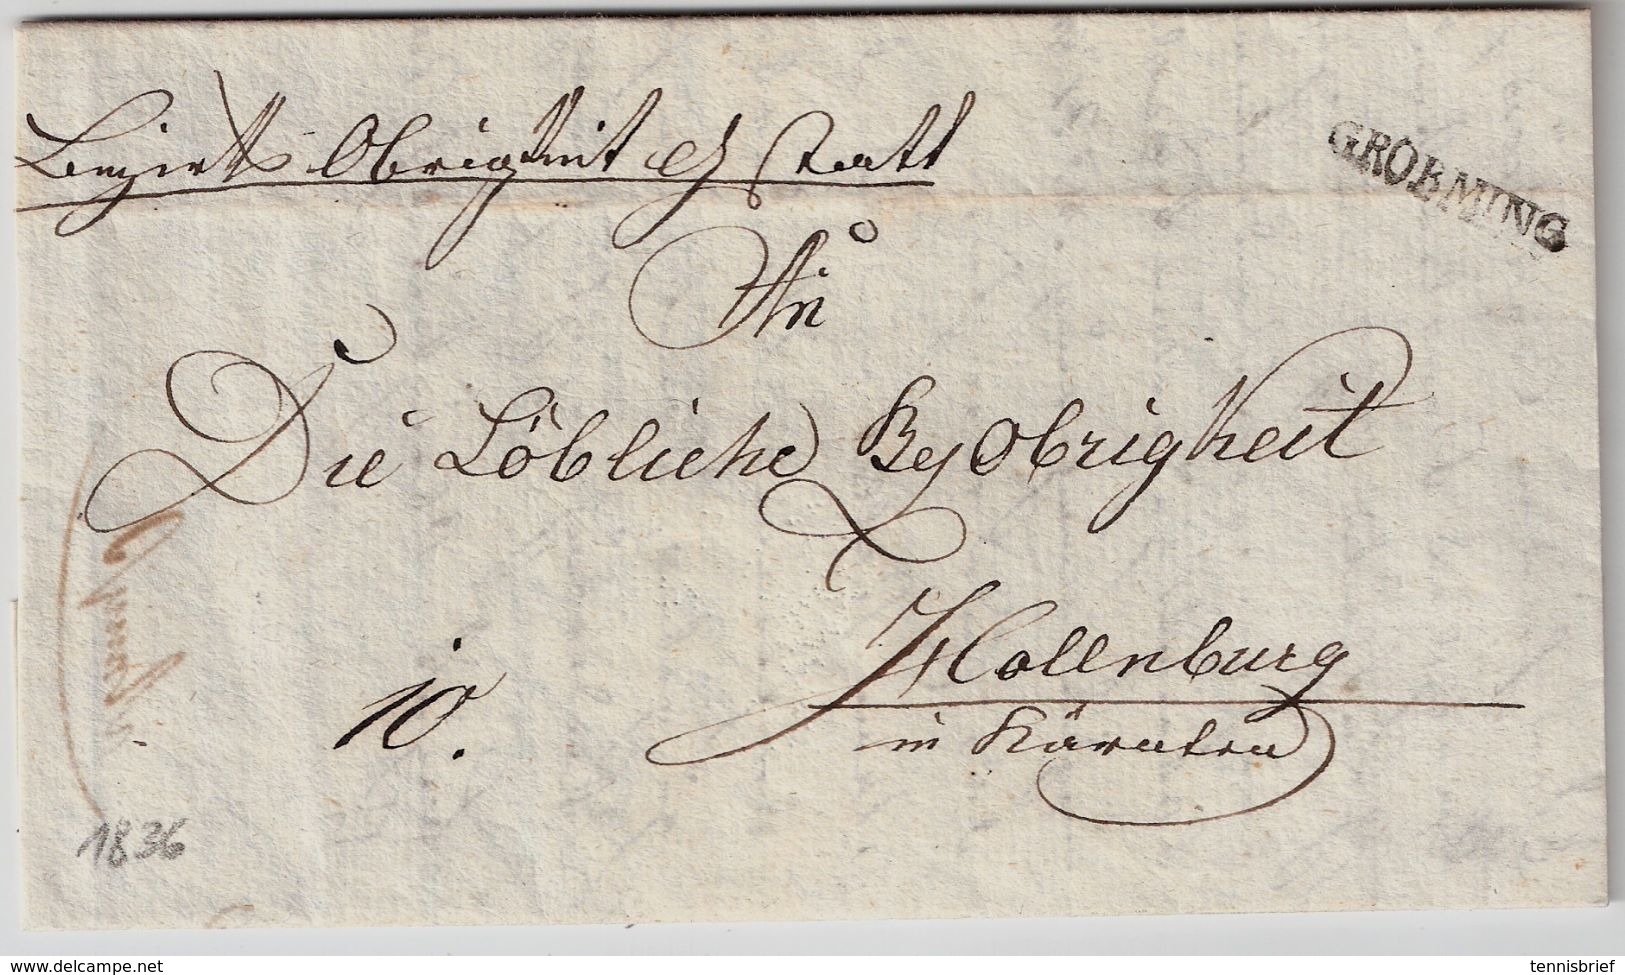 Bezirks Obrigkeit
GROBMING
An
Die Löbliche Bez Obrigkeit
Hollenburg
in Kärnten
10.
1836
www.delcampe.net
tennisbrief